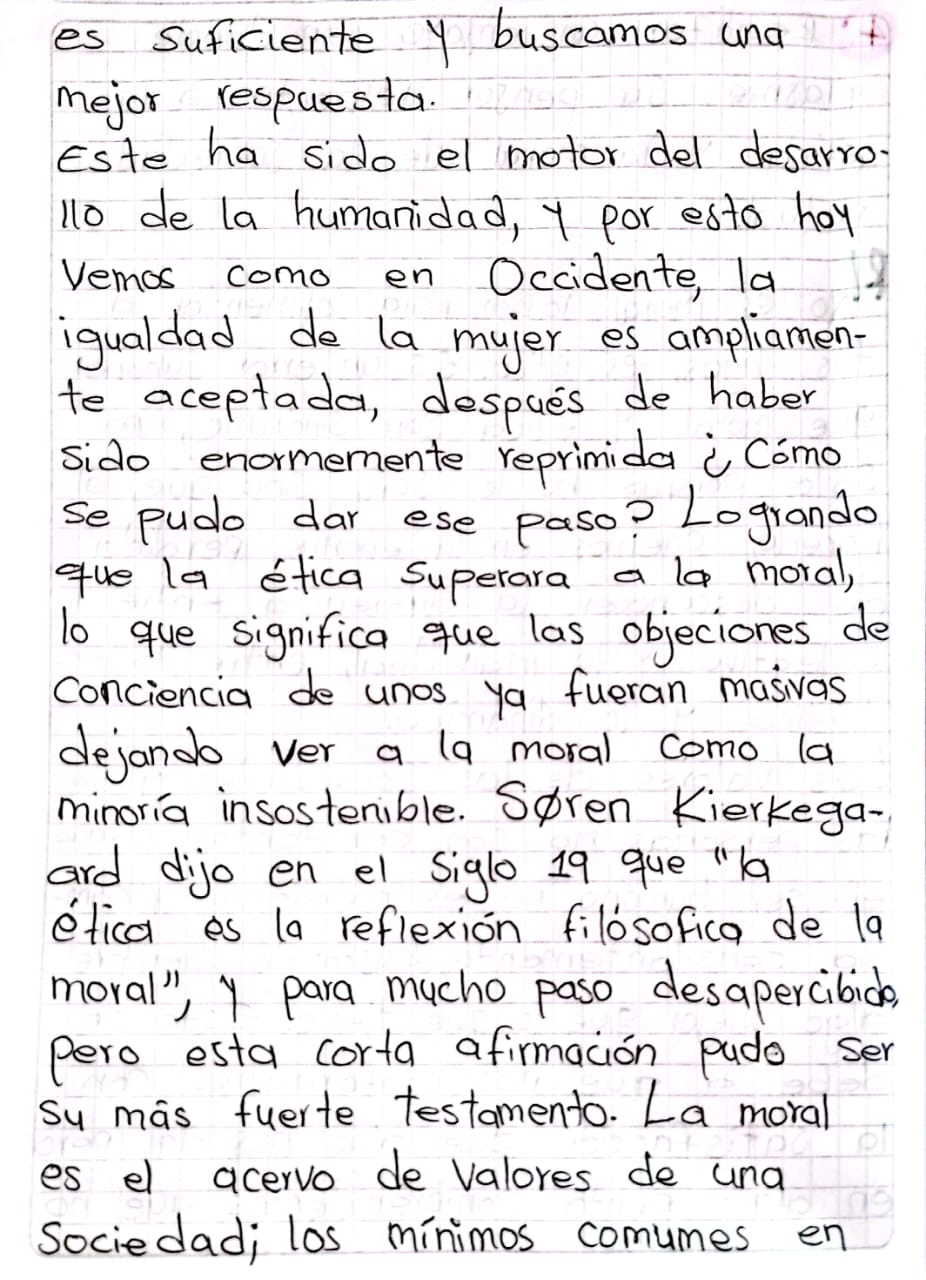 es suficiente y buscamos una
mejor respuesta.
Este ha sido el motor del desarro-
llo de la humanidad, y por esto hoy
Vemos como en Occidente, la
igualdad de la mujer es ampliamen-
te aceptada, después de haber
sido enormemente reprimida ¿Cómo
se pudo dar ese paso? Logrando
que la ética superara a la moral,
lo que significa que las objeciones de
conciencia de unos ya fueran masivas
dejando ver a la moral como la
minoría insostenible. Søren Kierkega-
ard dijo en el siglo 19 que "la
ética es la reflexión filósofica de la
moral", y para mucho paso desapercibido,
pero esta corta afirmación pudo ser
su más fuerte testamento. La moral
es el acervo de valores de una
Sociedad; los mínimos comumes en